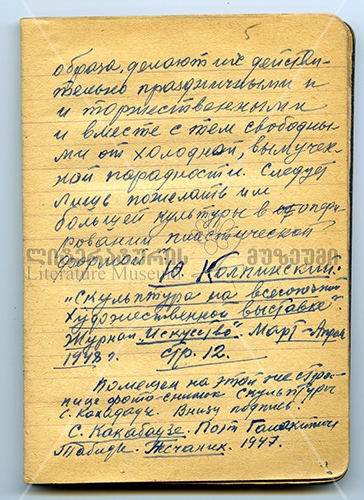 5
образа, делают их действи-
тельно праздничными и
и торжественными
и вместе с тем свободны-
ми от холодной, вымучен-
ной парадности. Следует
лишь пожелать им
большей культуры в опери-
ровании пластической
формой
Ю. Колпинский.
"Скульптура на всесоюзной
художественной выставке".
Журнал "Искусство". Март-Апрель
1948 г. стр. 12.
Помещен на этой же стра-
нице фото-снимок скульптуры
С. Какабадзе. Внизу подпись:
С. Какабадзе. Поэт Галактион
Табидзе. Гипс. 1947.
ლიტერატურის მუზეუმი
Literature Museum